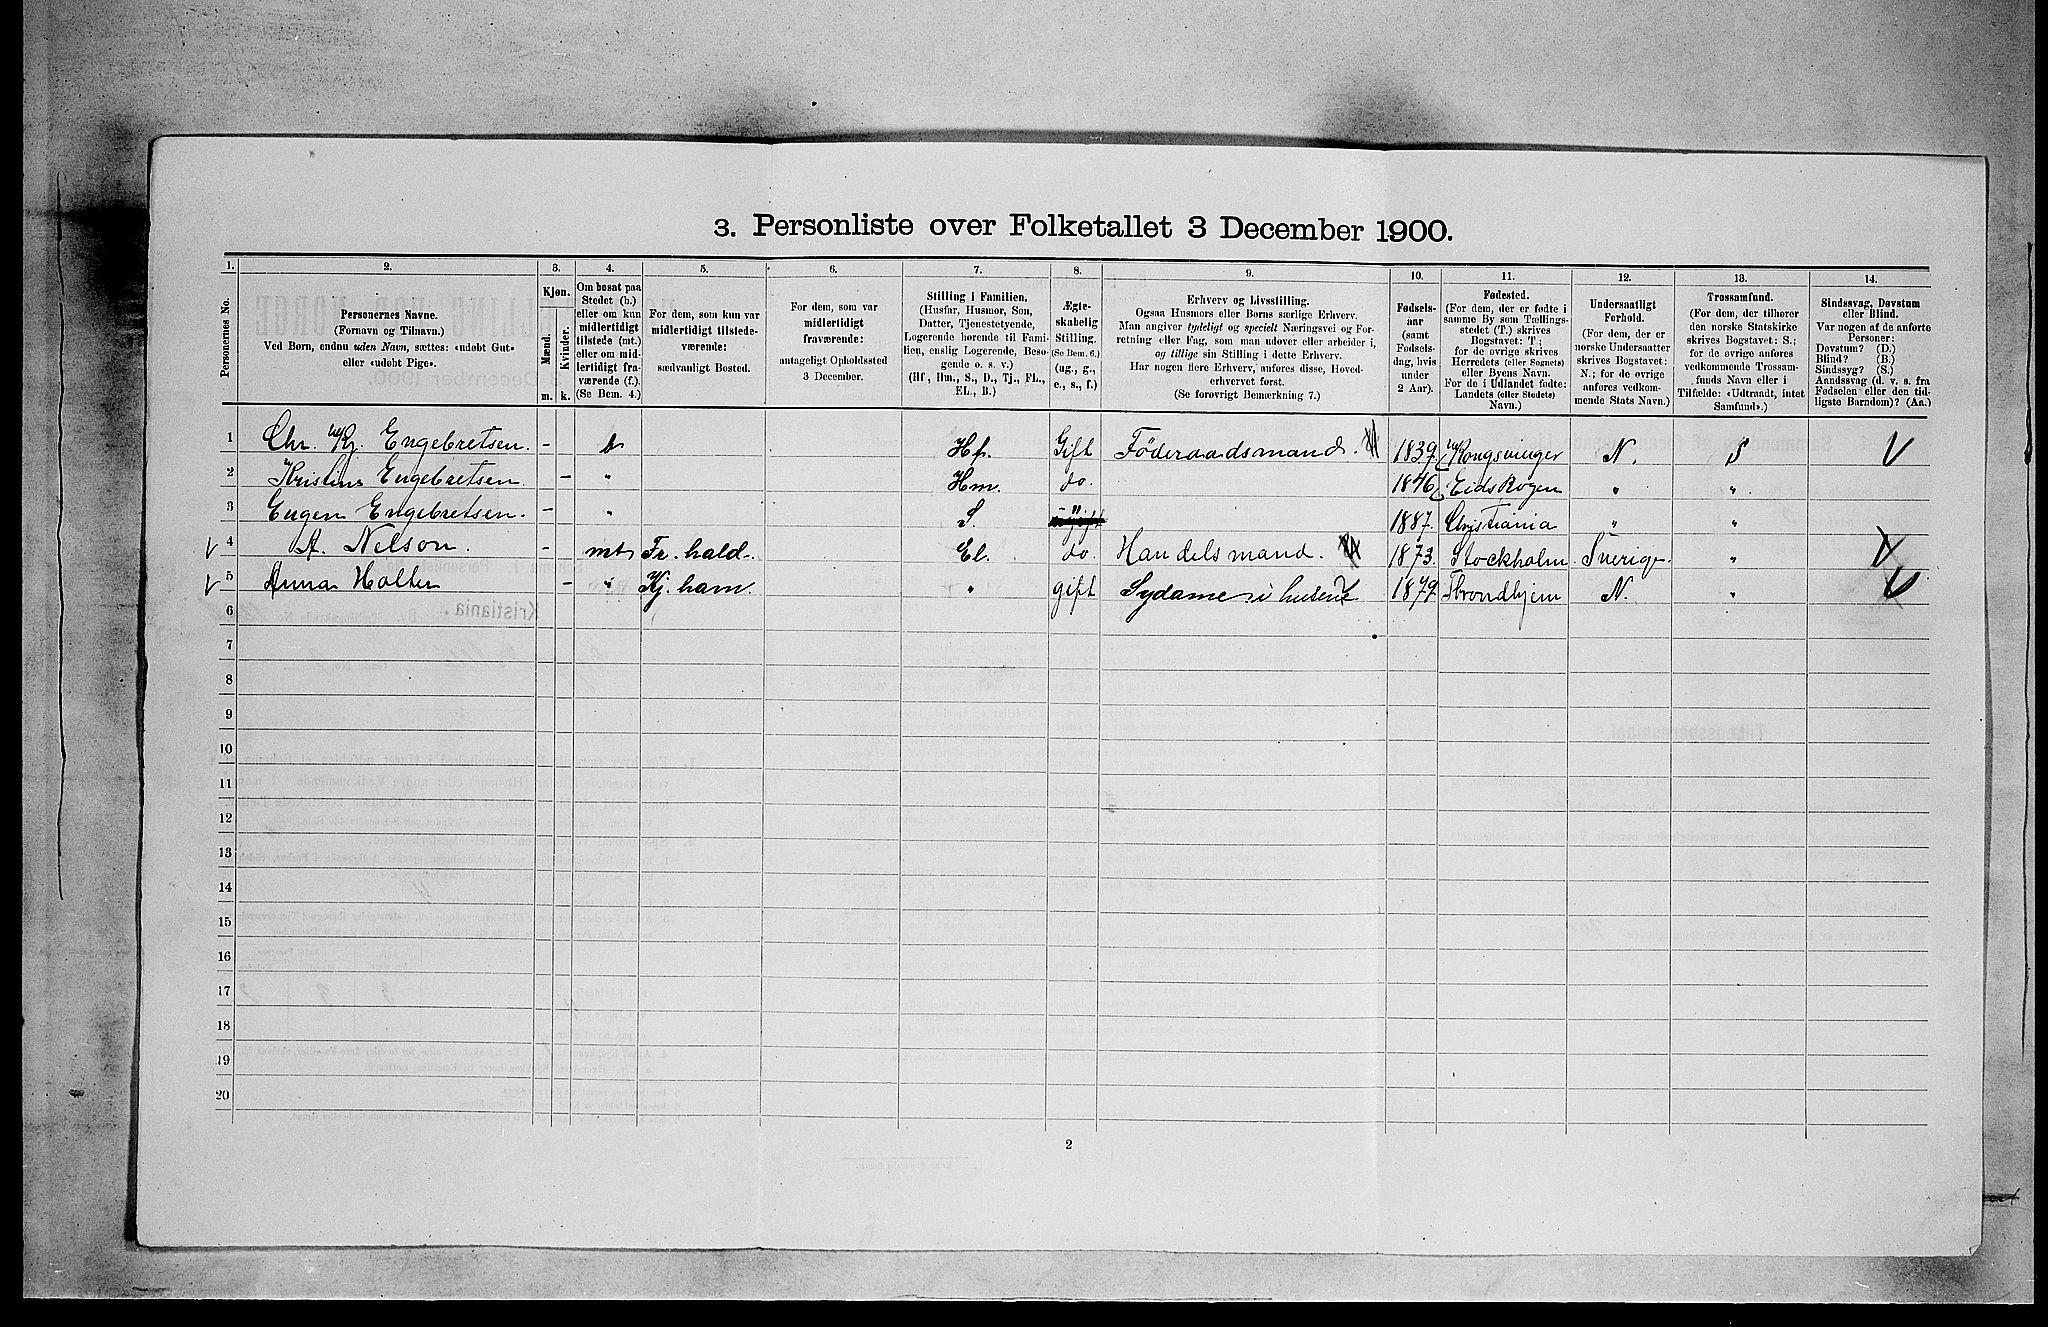 3. Personliste over Folketallet 3 December 1900.
1. 2. 3. 4. 5. 6. 7. 8. 9. 10. 11. 12. 13. 14.
Personernes No.
Personernes Navne.
(Fornavn og Tilnavn.)
Ved Børn, endnu uden Navn, sættes: «udøbt Gut»
eller «udøbt Pige».
Kjøn.
Mænd. Kvinder.
m. k.
Om bosat paa
Stedet (b.)
eller om kun
midlertidigt
tilstede (mt.)
eller om mid-
lertidigt fra-
værende (f.)
(Se Bem. 4.)
For dem, som kun var
midlertidigt tilstede-
værende:
sædvanligt Bosted.
For dem, som var
midlertidigt
fraværende:
antageligt Opholdssted
3 December.
Stilling i Familien.
(Husfar, Husmor, Søn,
Datter, Tjenestetyende,
Logerende hørende til Fami-
lien, enslig Logerende, Besø-
gende o. s. v.)
(Hf., Hm., S., D., Tj., FL.,
EL., B.)
Ægte-
skabelig
Stilling.
(Se Bem. 6.)
(ug., g.,
e., s., f.)
Erhverv og Livsstilling.
Ogsaa Husmors eller Børns særlige Erhverv.
Man angiver tydeligt og specielt Næringsvei og For-
retning eller Fag, som man udøver eller arbeider i,
og tillige sin Stilling i dette Erhverv.
Har nogen flere Erhverv, anføres disse, Hoved-
erhvervet først.
(Se forøvrigt Bemærkning 7.)
Fødsels-
aar
(samt
Fødsels-
dag, hvis
under
2 Aar).
Fødested.
(For dem, der er fødte i
samme By som Tællings-
stedet (T.) skrives
Bogstavet: T;
for de øvrige skrives
Herredets (eller Sognets)
eller Byens Navn.
For de i Udlandet fødte:
Landets (eller Stedets)
Navn.)
Undersaatligt
Forhold.
(For dem, der er
norske Undersaatter
skrives Bogstavet:
N.; for de øvrige
anføres vedkom-
mende Stats Navn.)
Trossamfund.
(For dem, der tilhører
den norske Statskirke
skrives Bogstavet: S.;
for de øvrige anføres
vedkommende Trossam-
funds Navn eller i
Tilfælde: «Udtraadt, intet
Samfund».)
Sindssvag, Døvstum
eller Blind.
Var nogen af de anførte
Personer:
Døvstum? (D.)
Blind? (B.)
Sindssyg? (S.)
Aandssvag (d. v. s. fra
Fødselen eller den tid-
ligste Barndom)? (Aa.)
1 Chr. Kj. Engebretsen. – b Hf. Gift Föderaadsmand. 1839. Kongsvinger N. S
2 Kristine Engebretsen – " Hm. do. 1846 Eidskogen " "
3 Eugen Engebretsen. – " S. " 1887. Christiania " "
4 A. Nelson. – mt Fr. hald. El. do. Handelsmand. 1873. Stockholm Sverige. "
5 Anna Holter – " Kj. ham. " gift Sydame i husene 1879. Throndhjem N. "
6
7
8
9
10
11
12
13
14
15
16
17
18
19
20
2